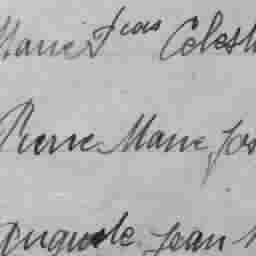 Marie Jean Celest
Pierre Marie Jos
Auguste Jean M